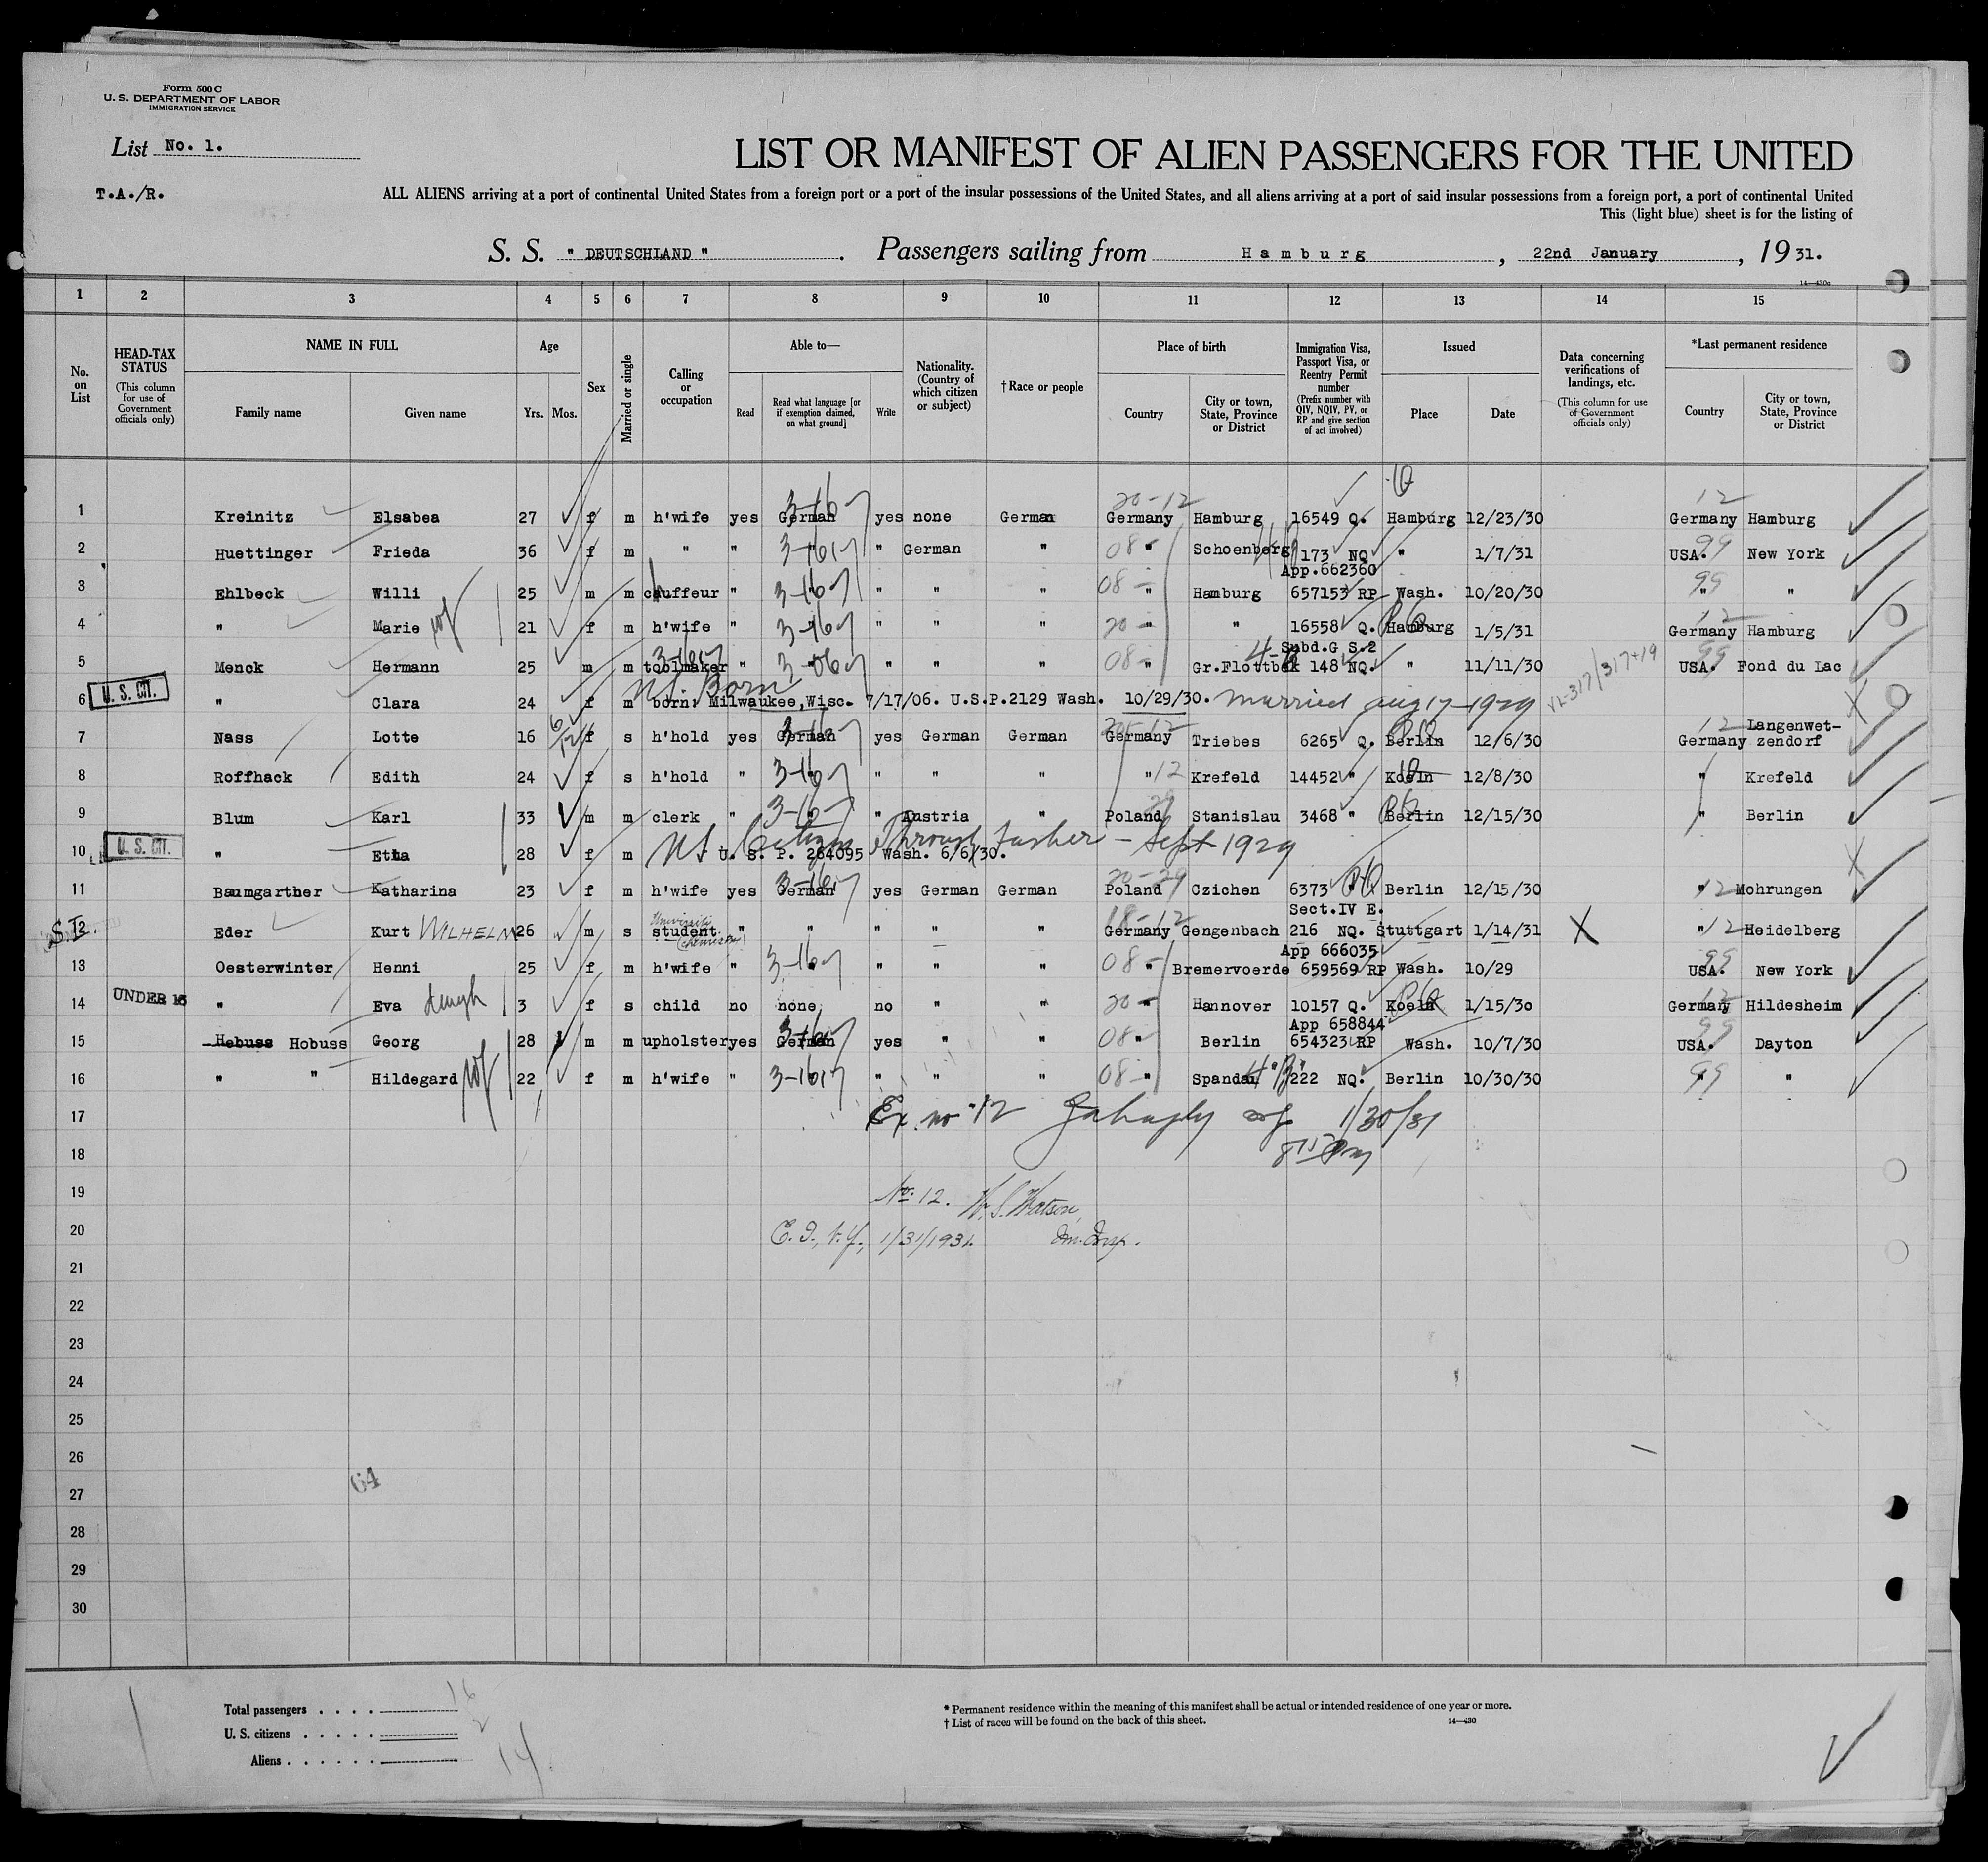 Form 500 C
U. S. DEPARTMENT OF LABOR
IMMIGRATION SERVICE
List No. 1.
LIST OR MANIFEST OF ALIEN PASSENGERS FOR THE UNITED
T.A./R.
ALL ALIENS arriving at a port of continental United States from a foreign port or a port of the insular possessions of the United States, and all aliens arriving at a port of said insular possessions from a foreign port, a port of continental United
This (light blue) sheet is for the listing of
S. S. " DEUTSCHLAND " . Passengers sailing from Hamburg , 22nd January , 19 31.
14—430c
1 2 3 4 5 6 7 8 9 10 11 12 13 14 15
No. on List
HEAD-TAX STATUS (This column for use of Government officials only)
NAME IN FULL Family name Given name
Age Yrs. Mos.
Sex
Married or single
Calling or occupation
Able to— Read Read what language [or if exemption claimed, on what ground] Write
Nationality. (Country of which citizen or subject)
†Race or people
Place of birth Country City or town, State, Province or District
Immigration Visa, Passport Visa, or Reentry Permit number (Prefix number with QIV, NQIV, PV, or RP and give section of act involved)
Issued Place Date
Data concerning verifications of landings, etc. (This column for use of Government officials only)
*Last permanent residence Country City or town, State, Province or District
20-12 12
1 Kreinitz Elsabea 27 f m h'wife yes German 3-16 yes none German Germany Hamburg 16549 Q. Hamburg 12/23/30 Germany Hamburg
2 Huettinger Frieda 36 f m " " " " German " 08- " Schoenberg 173 NQ " 1/7/31 USA. 99 New York
App.662360
3 Ehlbeck Willi 25 m m cauffeur " 3-16 " " " 08- " Hamburg 657153 RP Wash. 10/20/30 99 " "
4 " Marie wf 21 f m h'wife " 3-16 " " " 20- " " 16558 Q. Hamburg 1/5/31 12 Germany Hamburg
Subd.G S.2
5 Menck Hermann 25 m m toolmaker " " " " 08- " Gr.Flottbek 148 NQ. " 11/11/30 USA. 99 Fond du Lac
U. S. CIT.
US Born
6 " Clara 24 f m born: Milwaukee,Wisc. 7/17/06. U.S.P.2129 Wash. 10/29/30. married aug 17-1929
7 Nass Lotte 16 6/12 f s h'hold yes German yes German German Germany Triebes 6265 Q. Berlin 12/6/30 12 Germany Langenwet-zendorf
8 Roffhack Edith 24 f s h'hold " 3-16 " " " " 12 Krefeld 14452 " Koeln 12/8/30 " Krefeld
9 Blum Karl 33 m m clerk " 3-16 " Austria " Poland Stanislau 3468 " Berlin 12/15/30 " Berlin
U. S. CIT.
US Citizen Through father - Sept 1929
10 " Etha 28 f m U. S. P. 264095 Wash. 6/6/30.
11 Baumgarther Katharina 23 f m h'wife yes German yes German German 20-29 Poland Czichen 6373 " Berlin 12/15/30 " 12 Mohrungen
Sect.IV E.
S.I. 12 Eder Kurt WILHELM 26 m s student (chemistry) " " " " " 18-12 Germany Gengenbach 216 NQ. Stuttgart 1/14/31 X " 12 Heidelberg
App 666035
13 Oesterwinter Henni 25 f m h'wife " 3-16 " " " 08- " Bremervoerde 659569 RP Wash. 10/29 99 USA. New York
UNDER 16
14 " Eva daugh 3 f s child no none no " " 20- " Hannover 10157 Q. Koeln 1/15/30 12 Germany Hildesheim
App 658844
15 Hebuss Hobuss Georg 28 m m upholster yes German yes " " 08- " Berlin 654323 RP Wash. 10/7/30 99 USA. Dayton
16 " " Hildegard wf 22 f m h'wife " " " " 08- " Spandau 222 NQ. Berlin 10/30/30 99 " "
17 Ex. no 12 1/30/31
18
19 No. 12. W. S. Watson,
20 E. I., N.Y., 1/31/1931. Im. Insp.
21
22
23
24
25
26
27
64
28
29
30
Total passengers . . . . 16
U. S. citizens . . . . . 2
Aliens . . . . . . 14
* Permanent residence within the meaning of this manifest shall be actual or intended residence of one year or more.
† List of races will be found on the back of this sheet.
14—430